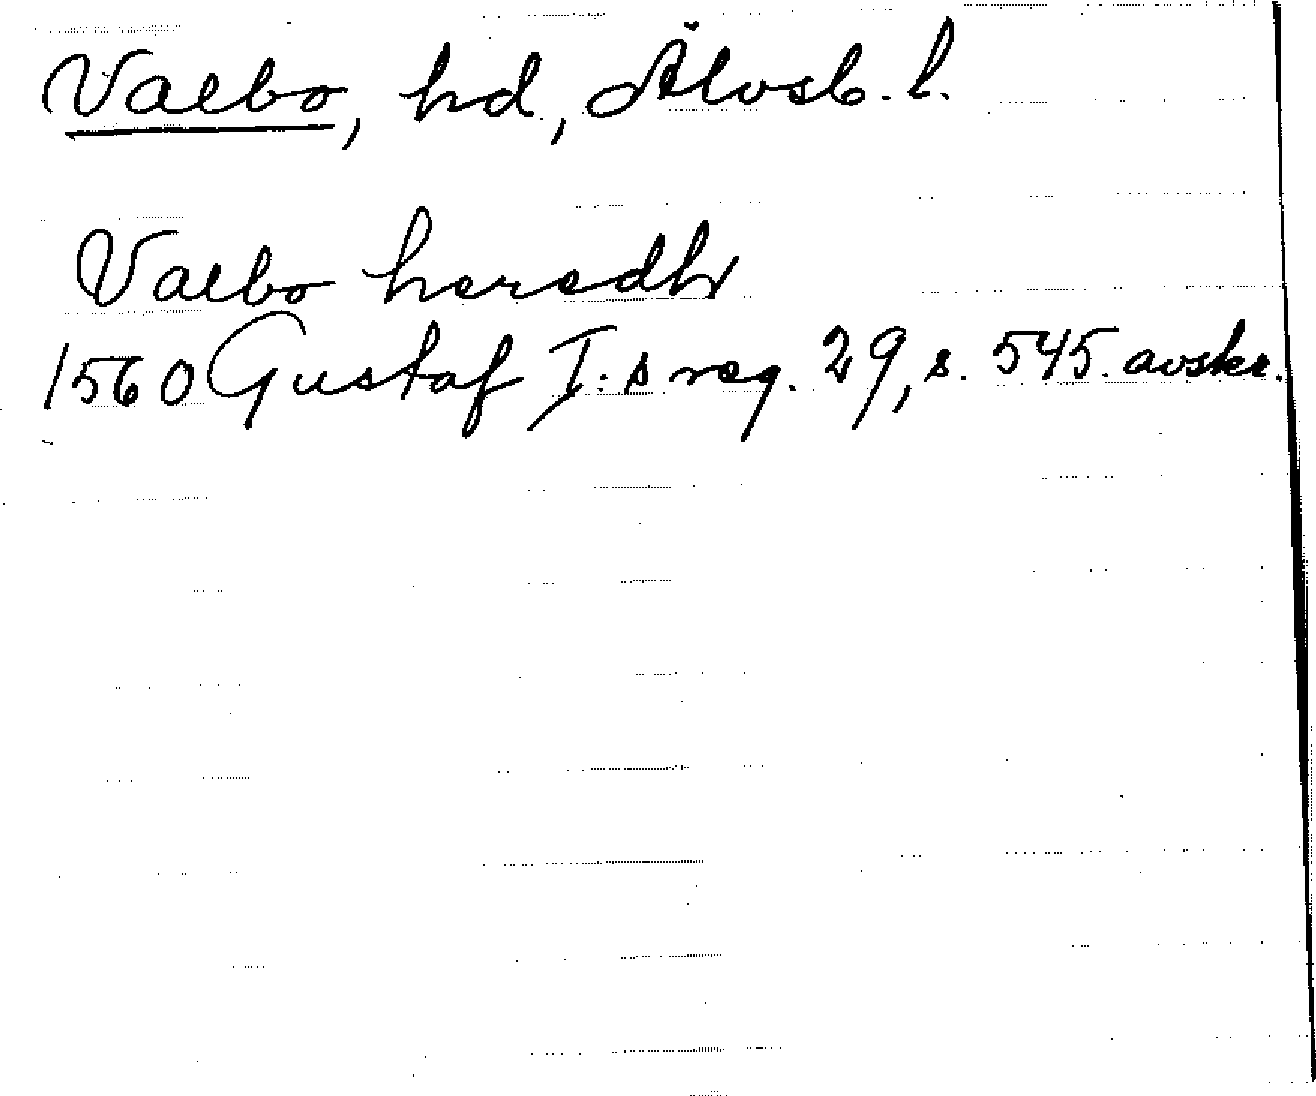 Valbo, hd, Älvsb. l.
Valbo heredh
1560 Gustaf I:s reg. 29, s. 545. avskr.